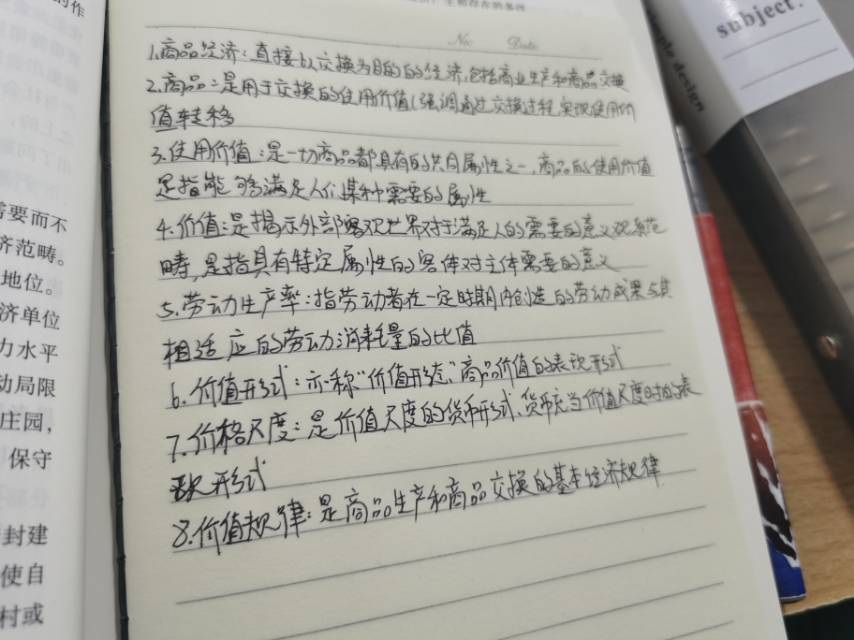 的作
需要而不
济范畴。
地位。
济单位
力水平
动局限
庄园，
保守
封建
使自
村或
No:    Date:
1.商品经济：直接以交换为目的的经济，包括商业生产和商品交换
2.商品：是用于交换的使用价值（强调通过交换过程实现使用价
值转移
3.使用价值：是一切商品都具有的共同属性之一，商品的使用价值
是指能够满足人们某种需要的属性
4.价值：是揭示外部客观世界对于满足人的需要的意义观系范
畴，是指具有特定属性的客体对主体需要的意义
5.劳动生产率：指劳动者在一定时期内创造的劳动成果与其
相适应的劳动消耗量的比值
6.价值形式：亦称“价值形态”商品价值的表现形式
7.价格尺度：是价值尺度的货币形式、货币充当价值尺度时的表
现形式
8.价值规律：是商品生产和商品交换的基本经济规律
subject:
simple design